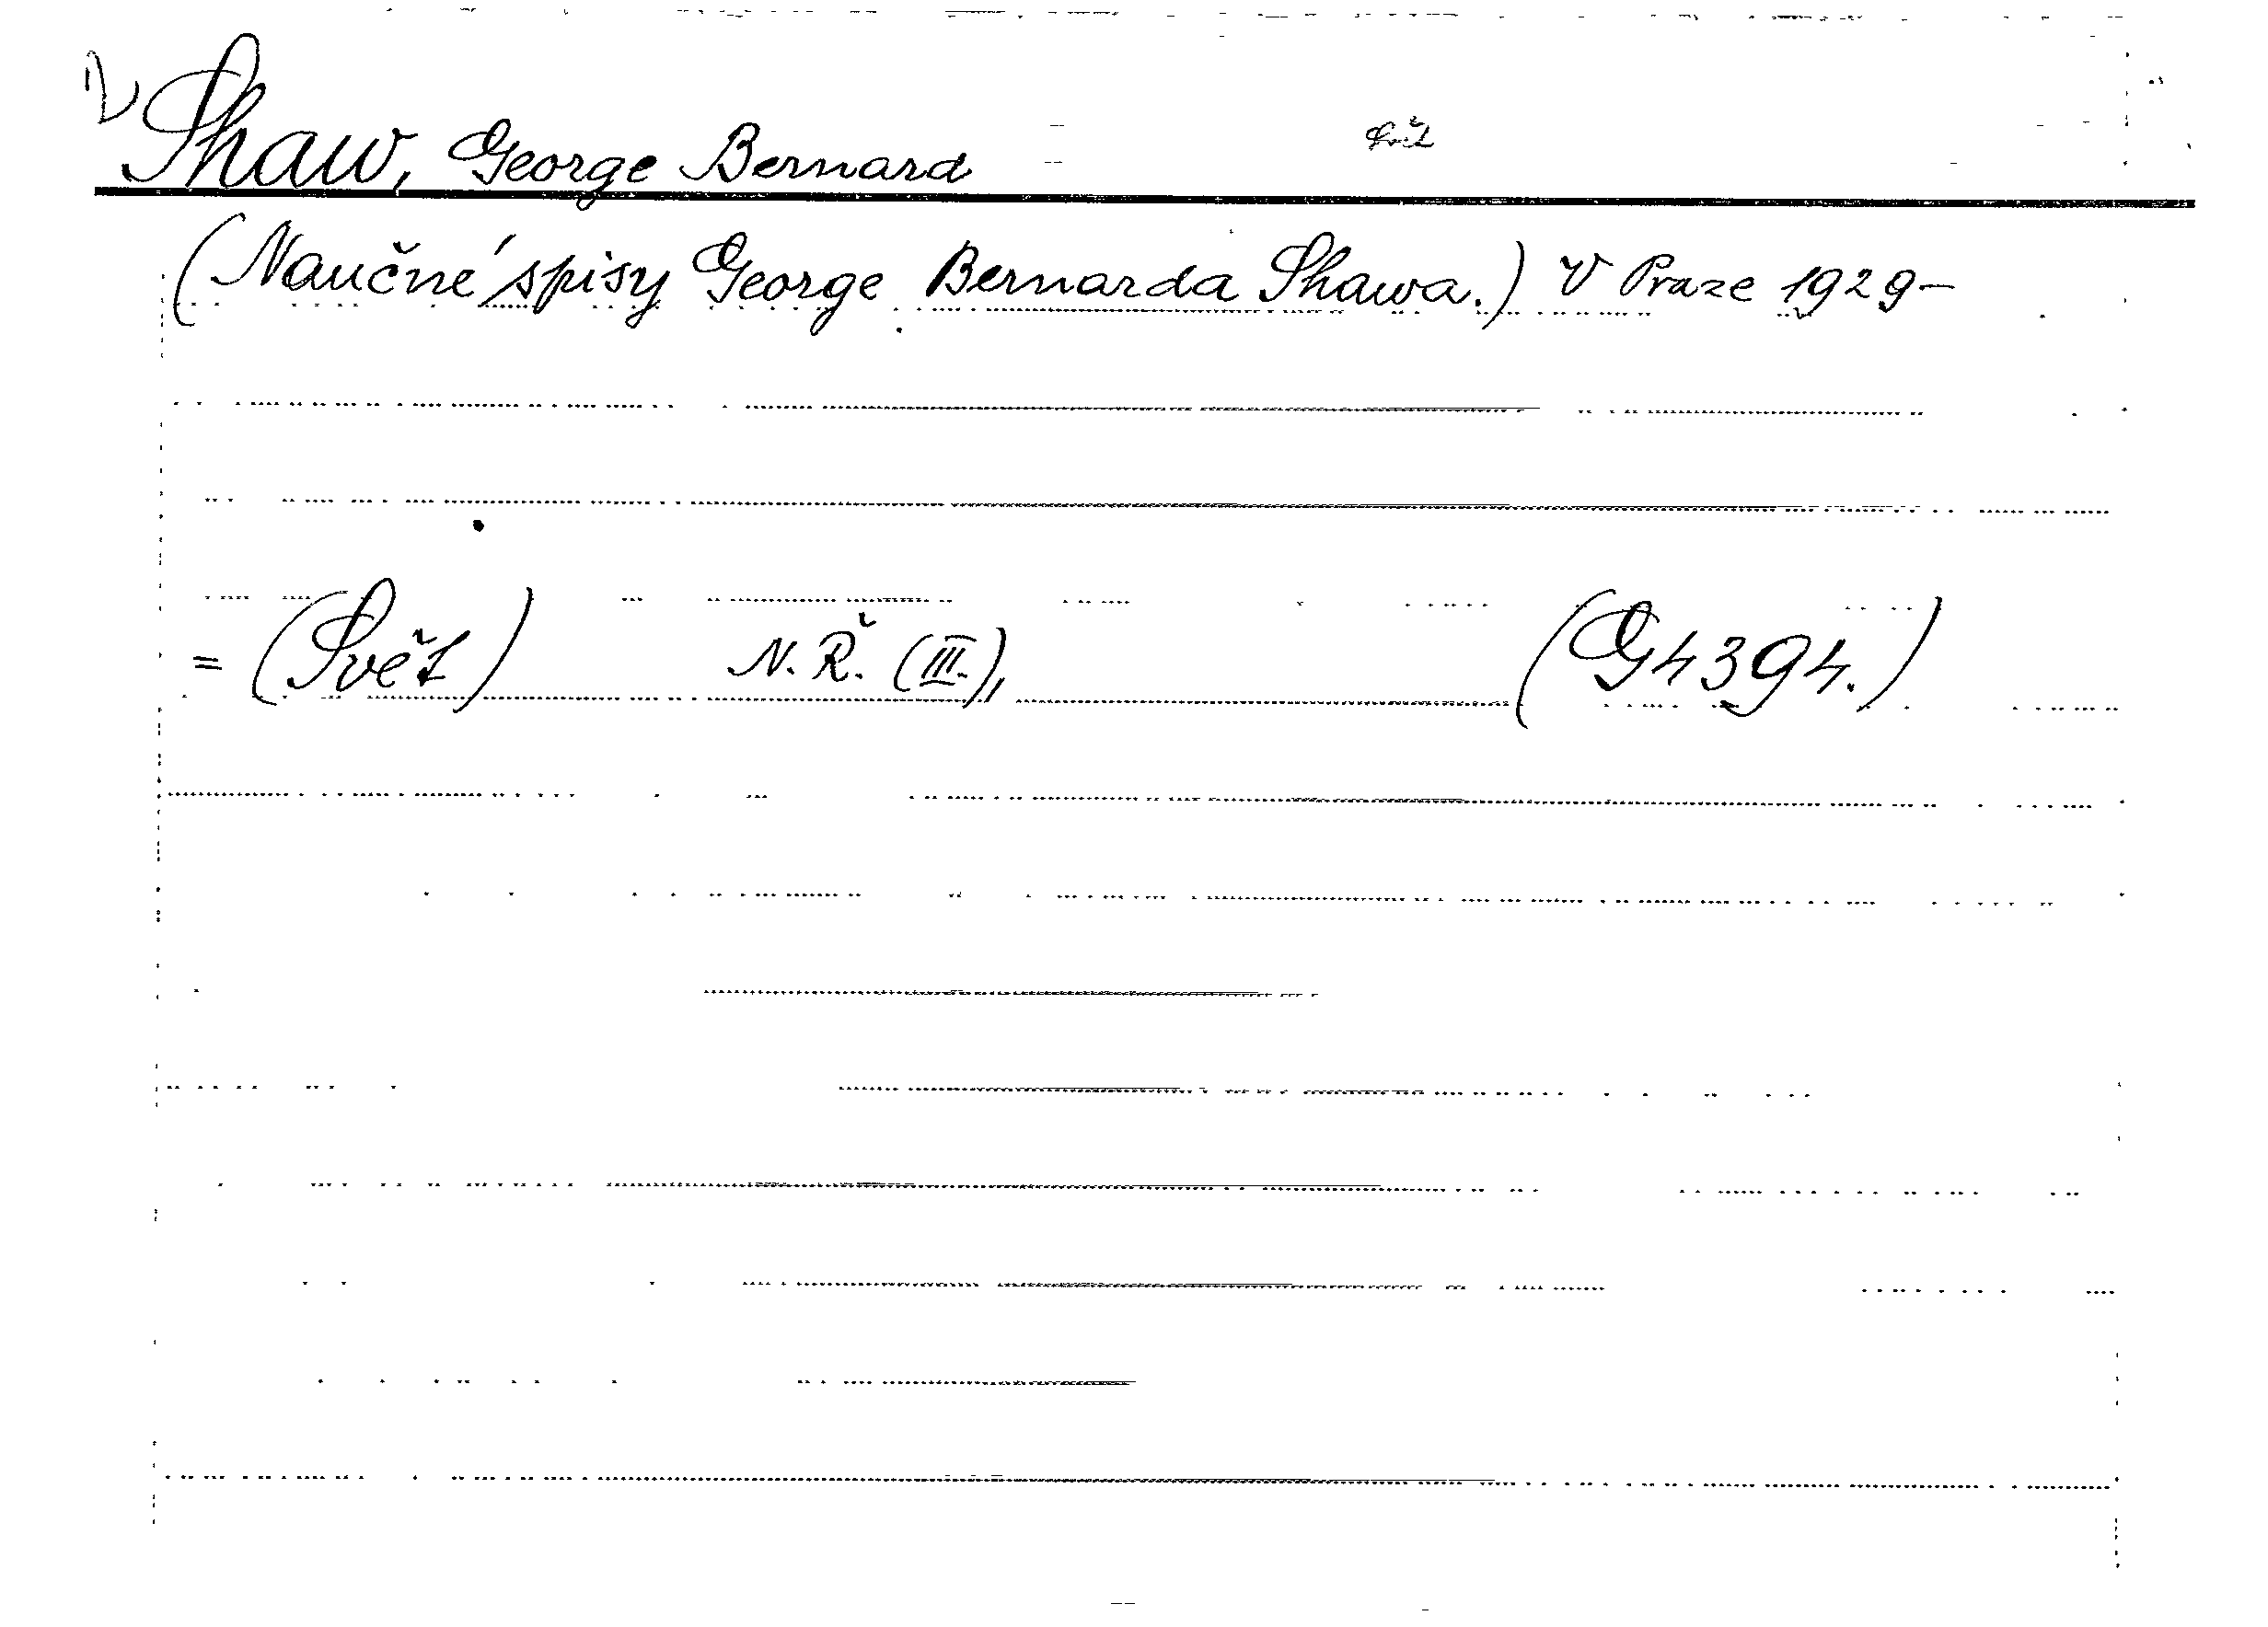 Shaw, George Bernard Svět
(Naučné spisy George Bernarda Shawa.) V Praze 1929-
= (Svět) N. Ř. (III.), (G4394.)